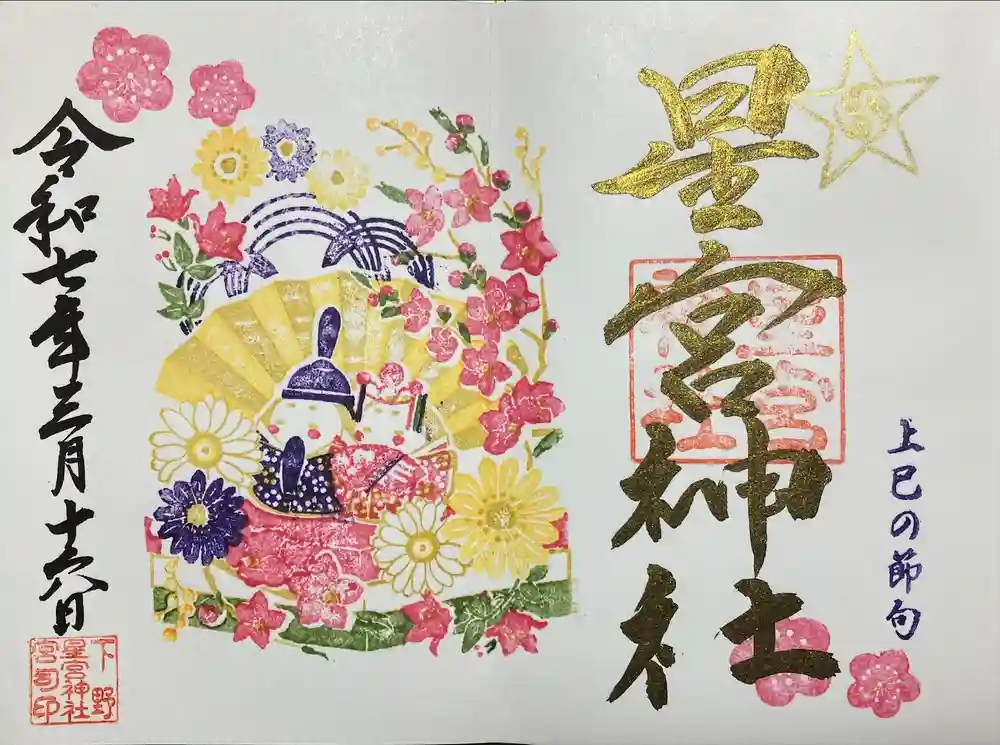 上巳の節句
星宮神社
星宮神社
令和七年三月十六日
下野
星宮神社
宮司印